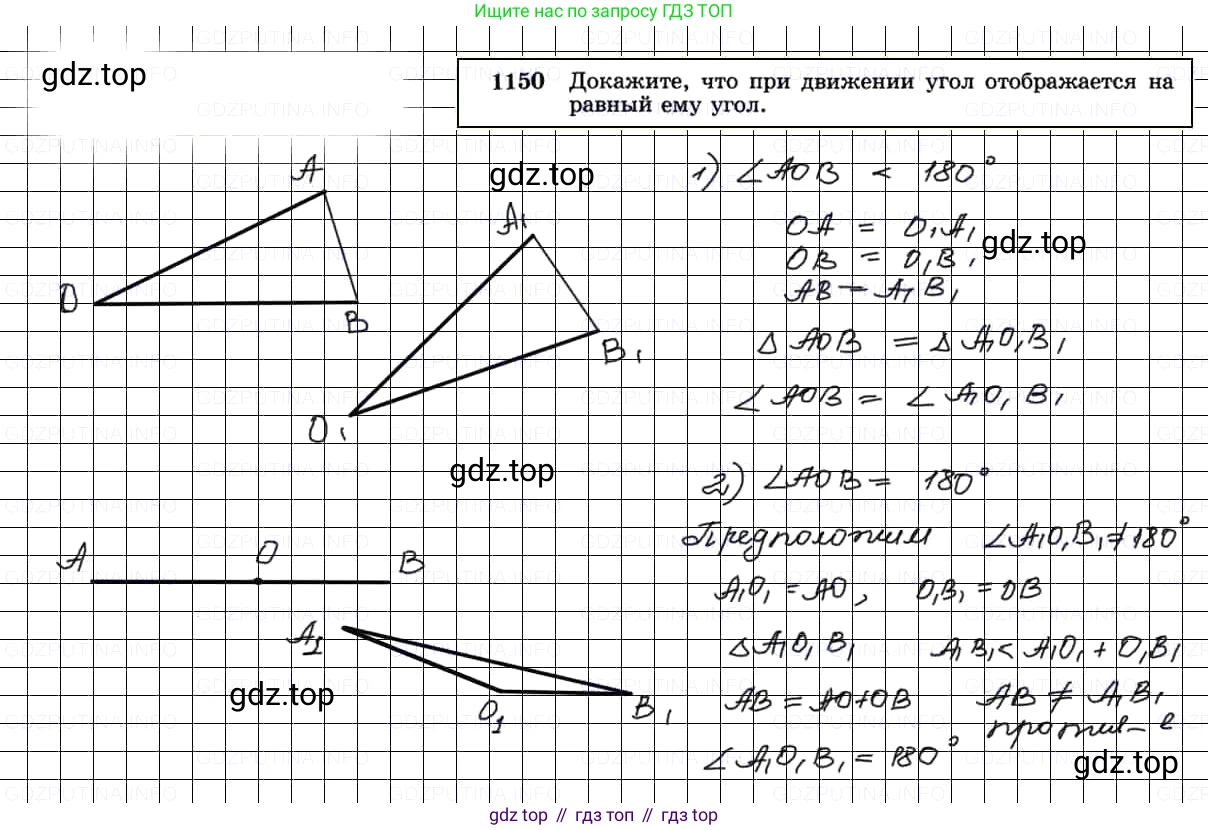 Ищите нас по запросу ГДЗ ТОП
gdz.top
1150 Докажите, что при движении угол отображается на
равный ему угол.
gdz.top
1) ∠AOB < 180°
OA = O₁A₁
gdz.top
OB = O₁B₁
AB = A₁B₁
△AOB = △A₁O₁B₁
∠AOB = ∠A₁O₁B₁
A
O
B
A₁
B₁
O₁
gdz.top
2) ∠AOB = 180°
Предположим ∠A₁O₁B₁ ≠ 180°
A₁O₁ = AO, O₁B₁ = OB
△A₁O₁B₁ A₁B₁ < A₁O₁ + O₁B₁
AB = AO+OB AB ≠ A₁B₁
против-е
∠A₁O₁B₁ = 180°
A
O
B
A₁
O₁
B₁
gdz.top
gdz.top
gdz top // гдз топ // гдз top